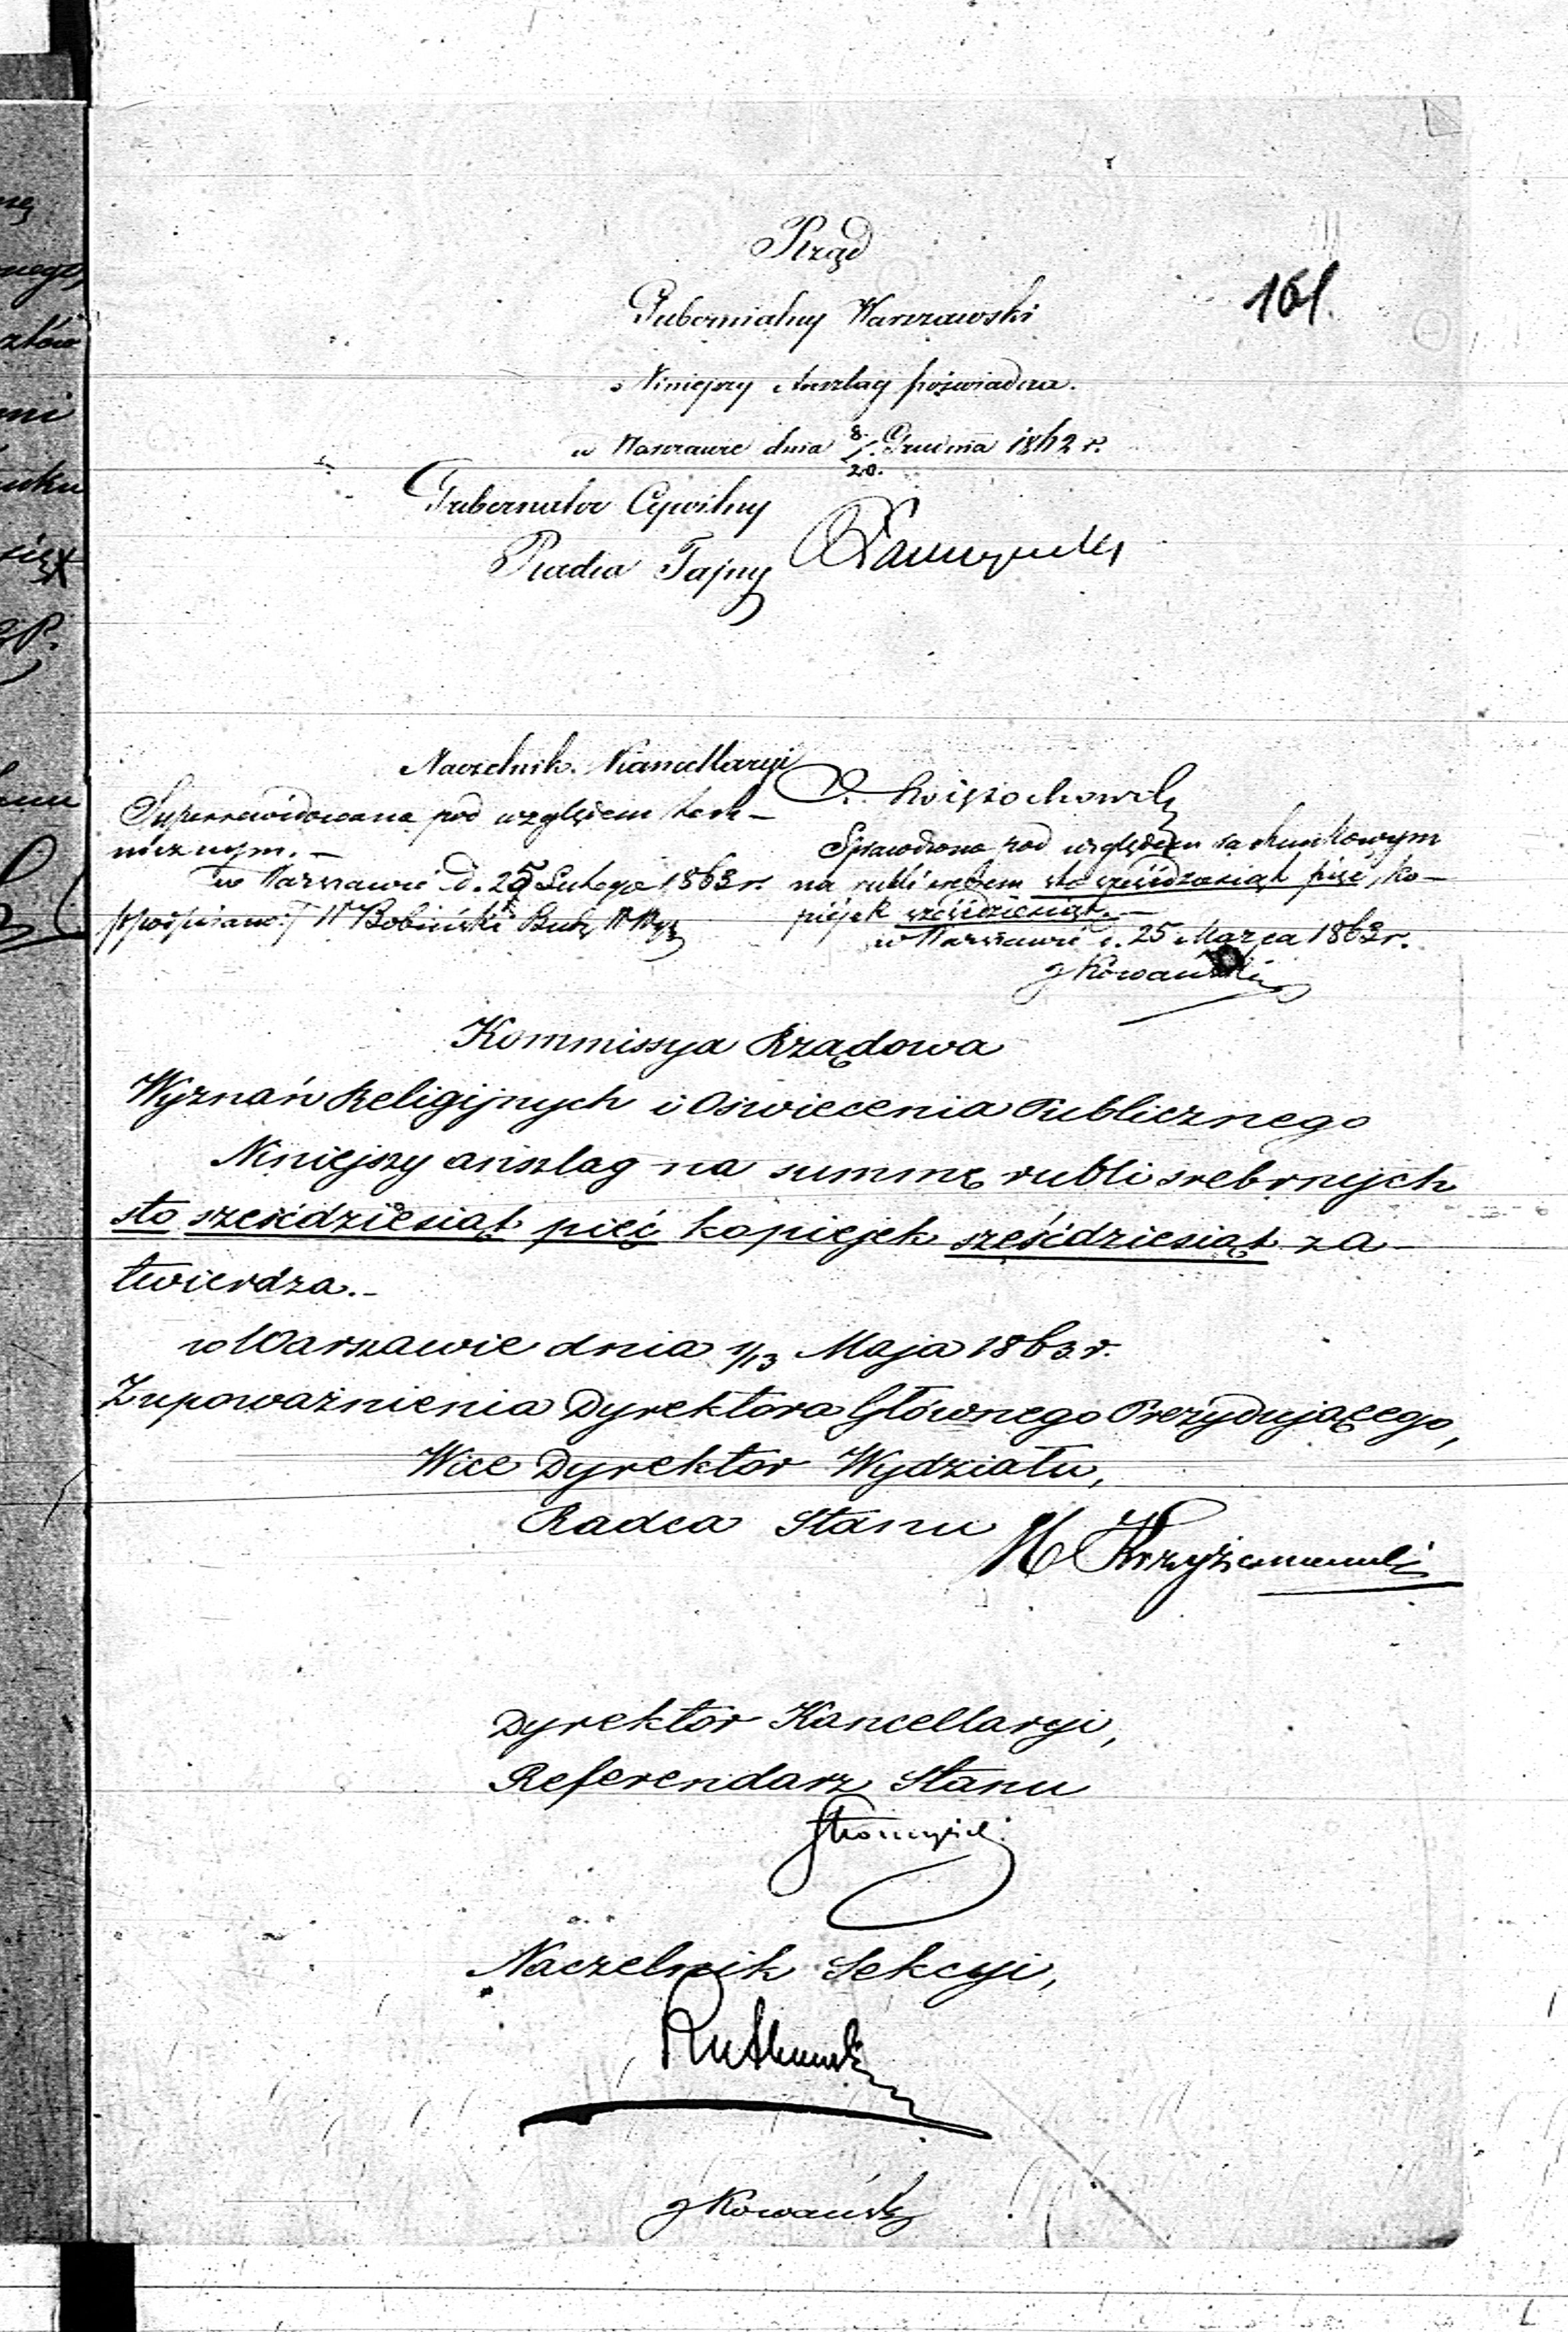 Rząd
161.
Gubernialny Warszawski
Niniejszy Anszlag poświadcza.
w Warszawie dnia 8/20. Grudnia 1862 r.
Gubernator Cywilny
Radca Tajny
Naczelnik Kancellaryi
Superrewidowana pod względem tech-
nicznym. -
w Warszawie d. 25 Lutego 1863 r.
/:podpisano:/ W Bobiński
Sprawdzono pod względem rachunkowym
na rubli srebrem sto sześćdziesiąt pięć, ko-
piejek sześćdziesiąt. -
w Warszawie d. 25 Marca 1863 r.
J Kowański
Kommissya Rządowa
Wyznań Religijnych i Oświecenia Publicznego
Niniejszy anszlag na summę rubli srebrnych
sto sześćdziesiąt pięć kopiejek sześćdziesiąt za-
twierdza. -
w Warszawie dnia 1/13 Maja 1863 r.
Z upoważnienia Dyrektora Głównego Prezydującego,
Wice Dyrektor Wydziału,
Radca Stanu
Krzyżanowski
Dyrektor Kancellaryi,
Referendarz Stanu
Naczelnik Sekcyi,
Rutkowski
J Kowański